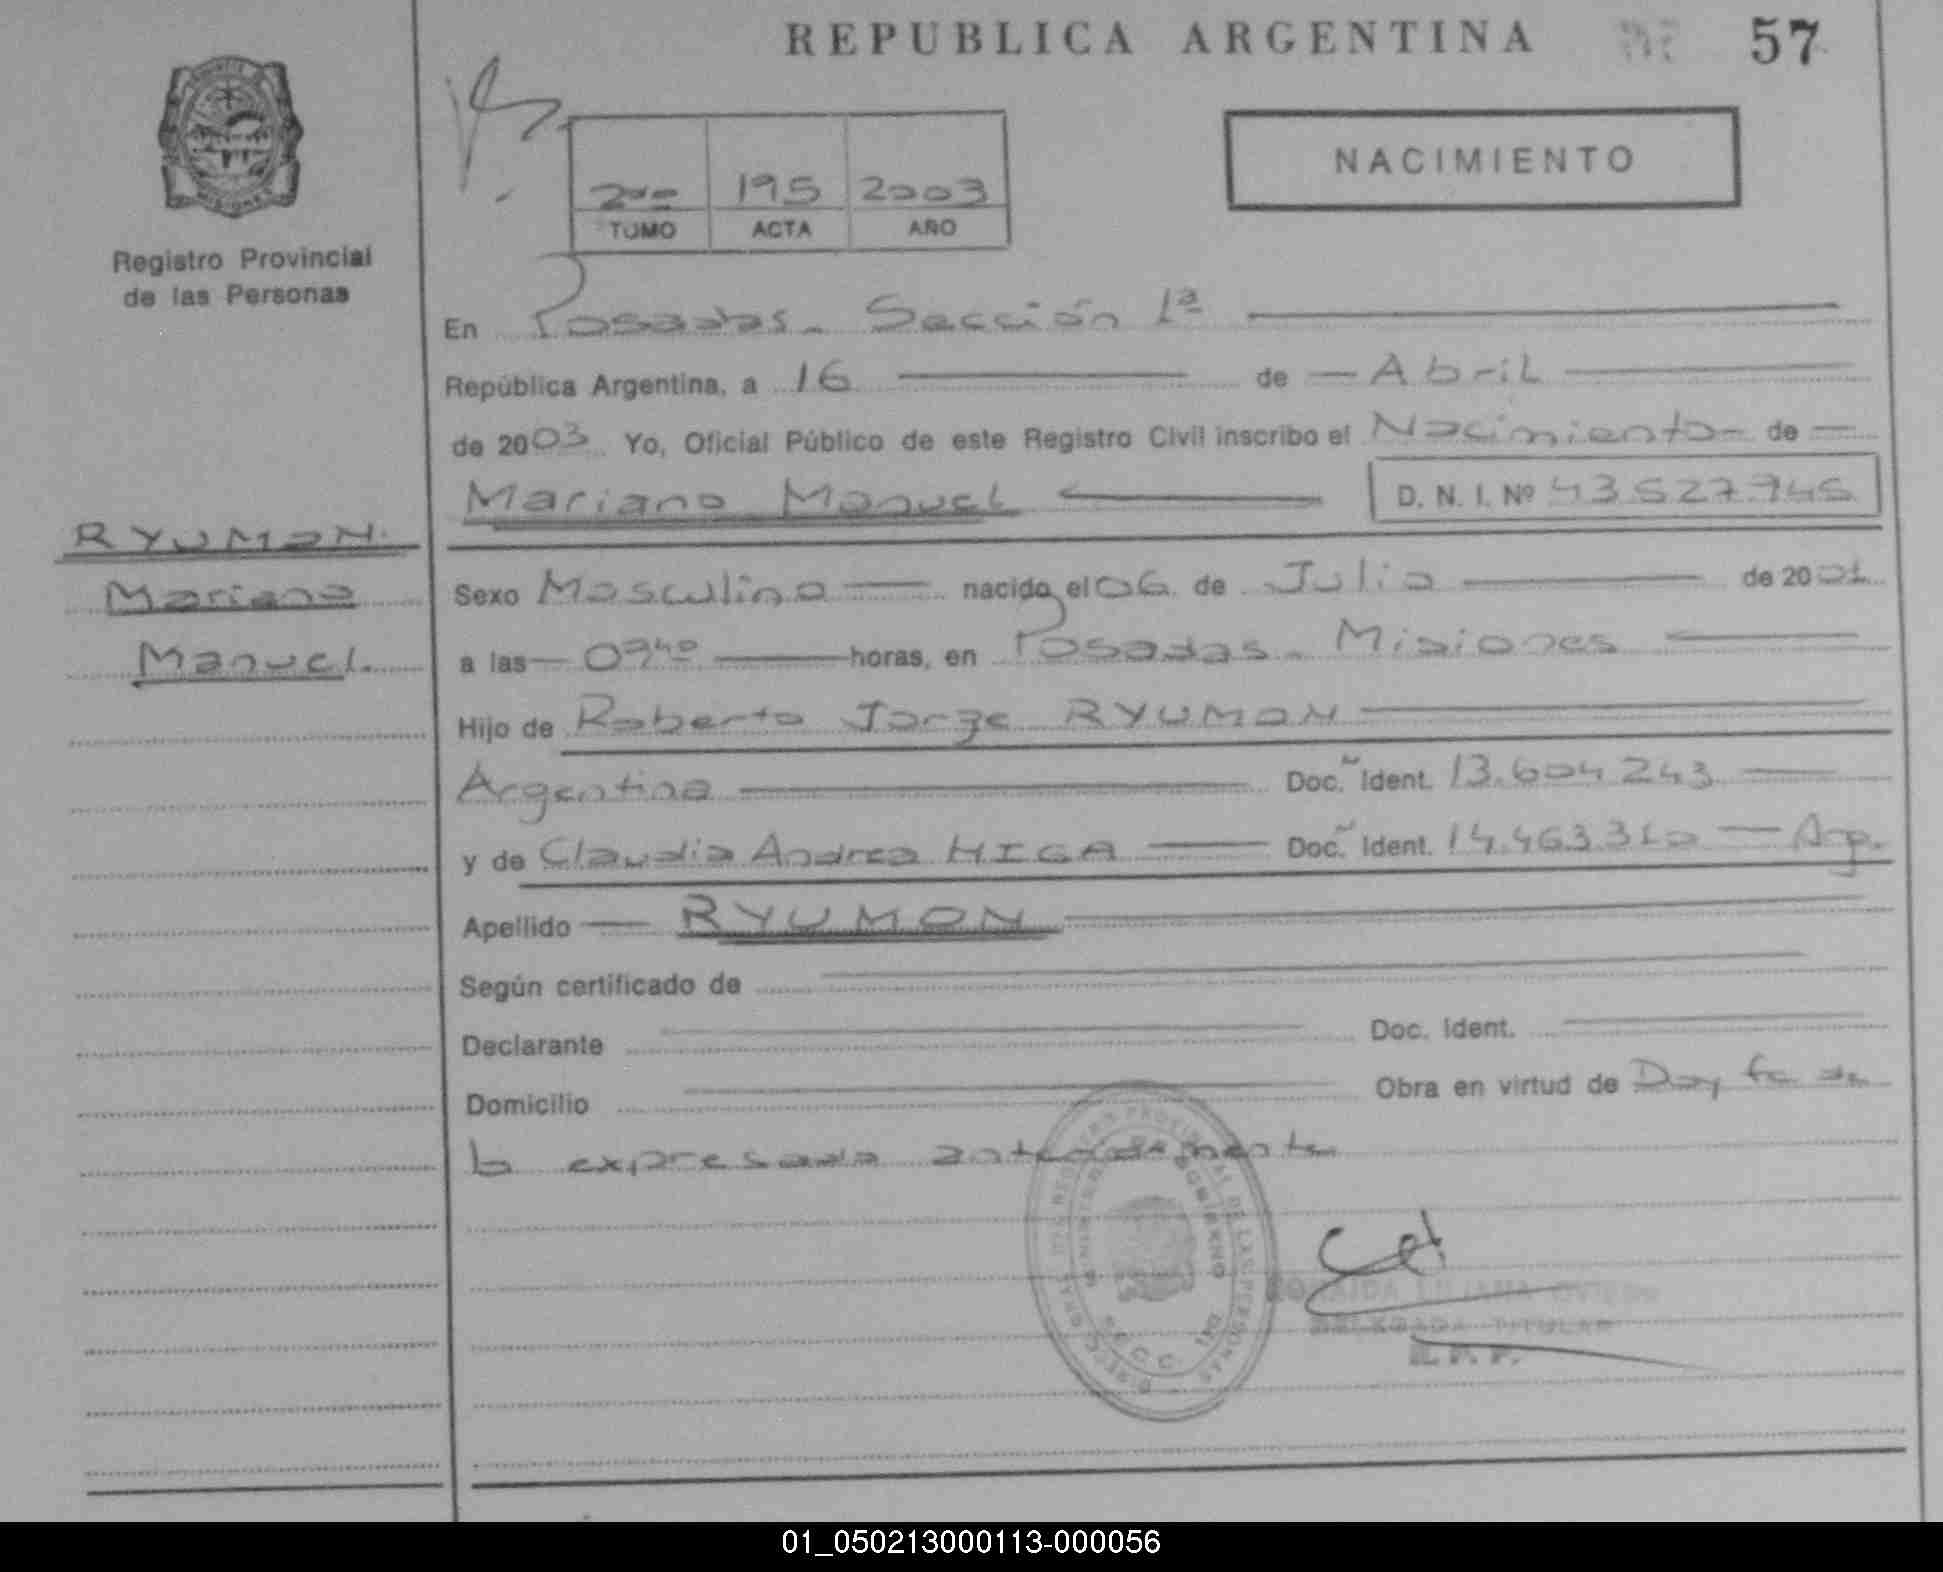 REPUBLICA ARGENTINA 57
NACIMIENTO
2do 195 2003
TOMO ACTA AÑO
Registro Provincial
de las Personas
En Posadas - Sección 1ª
República Argentina, a 16 de Abril
de 2003 Yo, Oficial Público de este Registro Civil inscribo el Nacimiento de
Mariano Manuel D. N. I. Nº 43.527.945
RYUMON.
Mariano
Manuel.
Sexo Masculino nacido el 06 de Julio de 2001
a las 0740 horas, en Posadas - Misiones
Hijo de Roberto Jorge RYUMON
Argentina Doc. Ident. 13.604.243
y de Claudia Andrea HIGA Doc. Ident. 14.463.310 Arg.
Apellido RYUMON
Según certificado de
Declarante Doc. Ident.
Domicilio Obra en virtud de Doy fe de
lo expresado anteriormente
LILIANA OVIEDO
DELEGADA TITULAR
R. P. P.
01_050213000113-000056